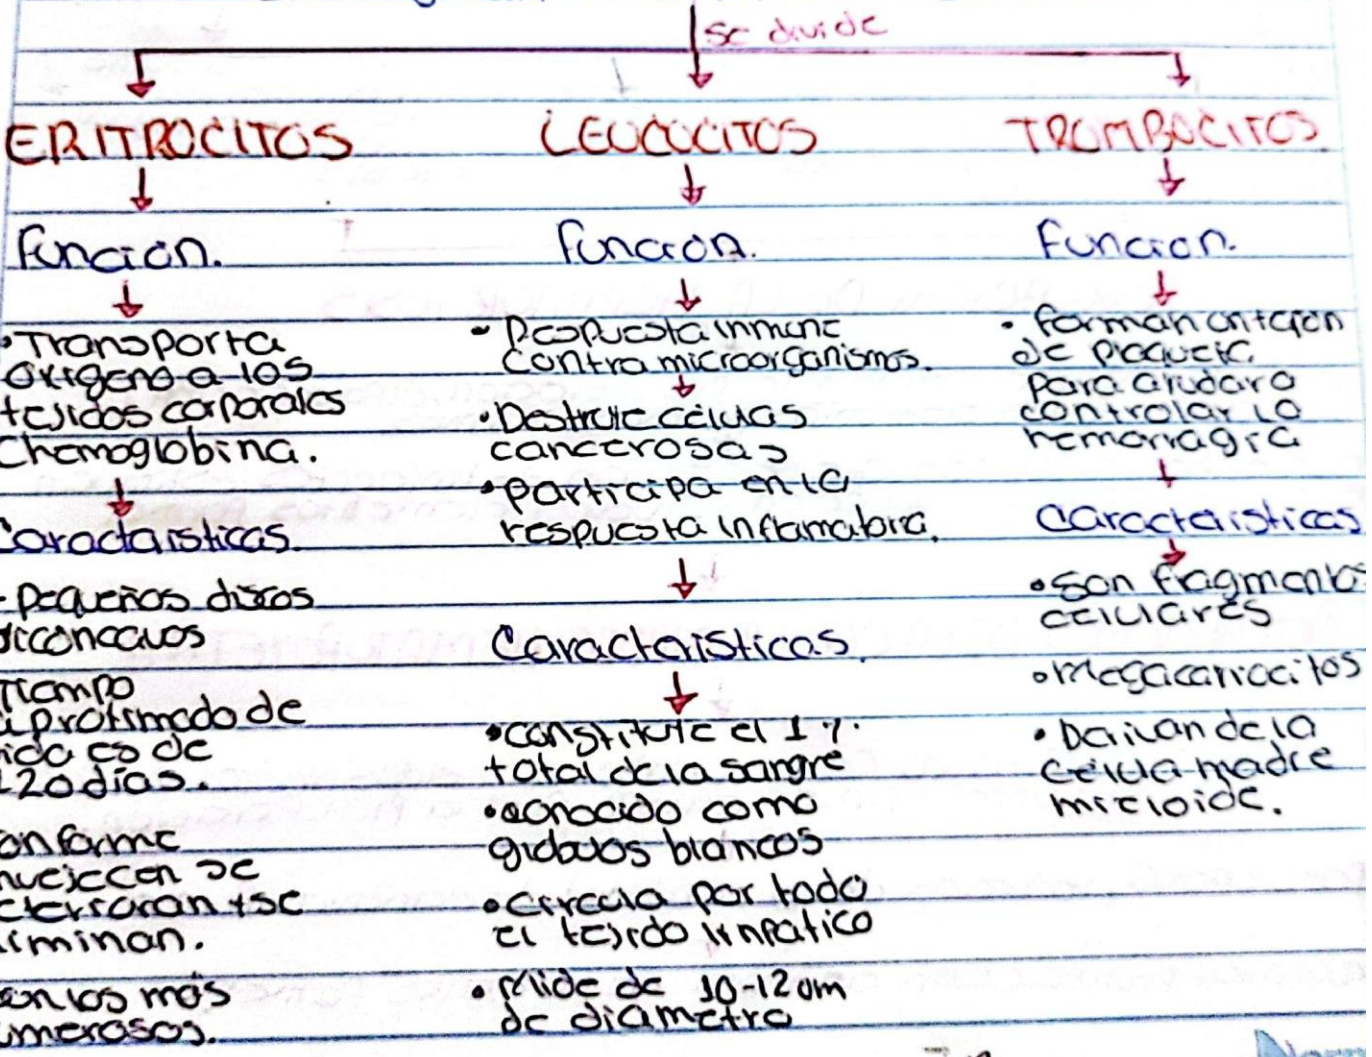 se divide
ERITROCITOS
Función.
• Transporta
oxigeno a los
tejidos corporales
Chemoglobina.
Características.
- Pequeños discos
biconcavos
Tiempo
aproximado de
vida es de
120 días.
conforme
envejecen se
+ se
eliminan.
son los más
numerosos.
LEUCOCITOS
Función.
• Respuesta inmune
contra microorganismos.
• Destruye células
cancerosas
• Participa en la
respuesta inflamatoria.
Características.
• Constituye el 1%.
total de la sangre
• conocido como
globulos blancos
• circula por todo
el tejido linpatico
• Mide de 10-12um
de diametro
TROMBOCITOS
Funcion.
• Forman un tapon
de plaquetas
para ayudar a
controlar la
hemorragia
Caracteristicas
• Son fragmentos
celulares
• Megacariocitos
• Derivan de la
celula madre
mieloide.